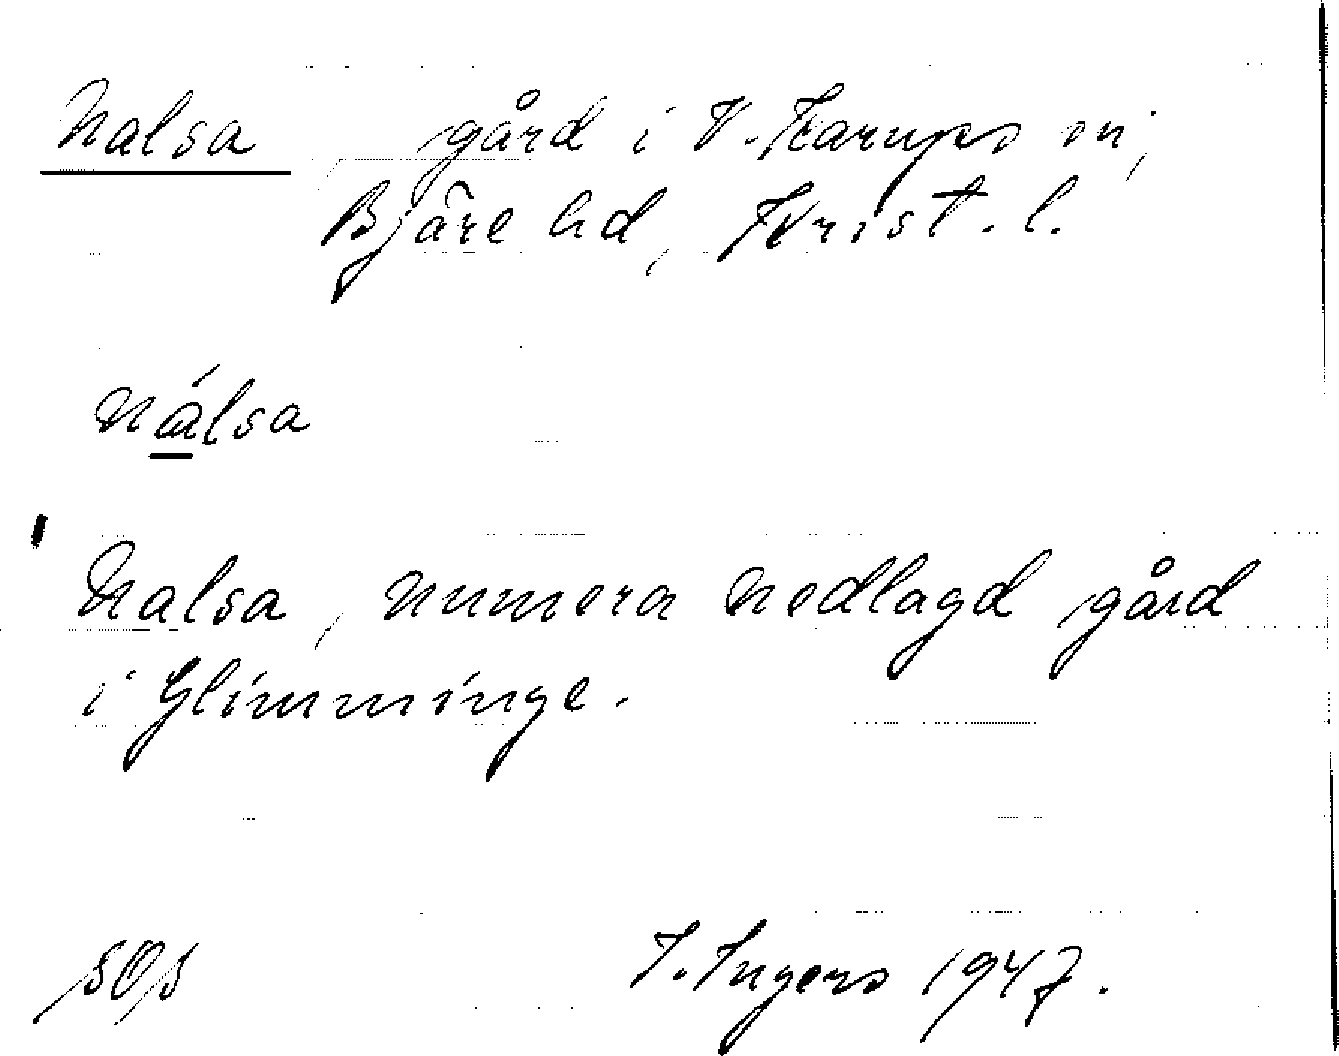 Nalsa gård i V. Karups sn,
Bjäre hd, Krist. l.
nálsa
Nalsa, numera nedlagd gård
i Glimminge.
SOS I. Ingers 1947.